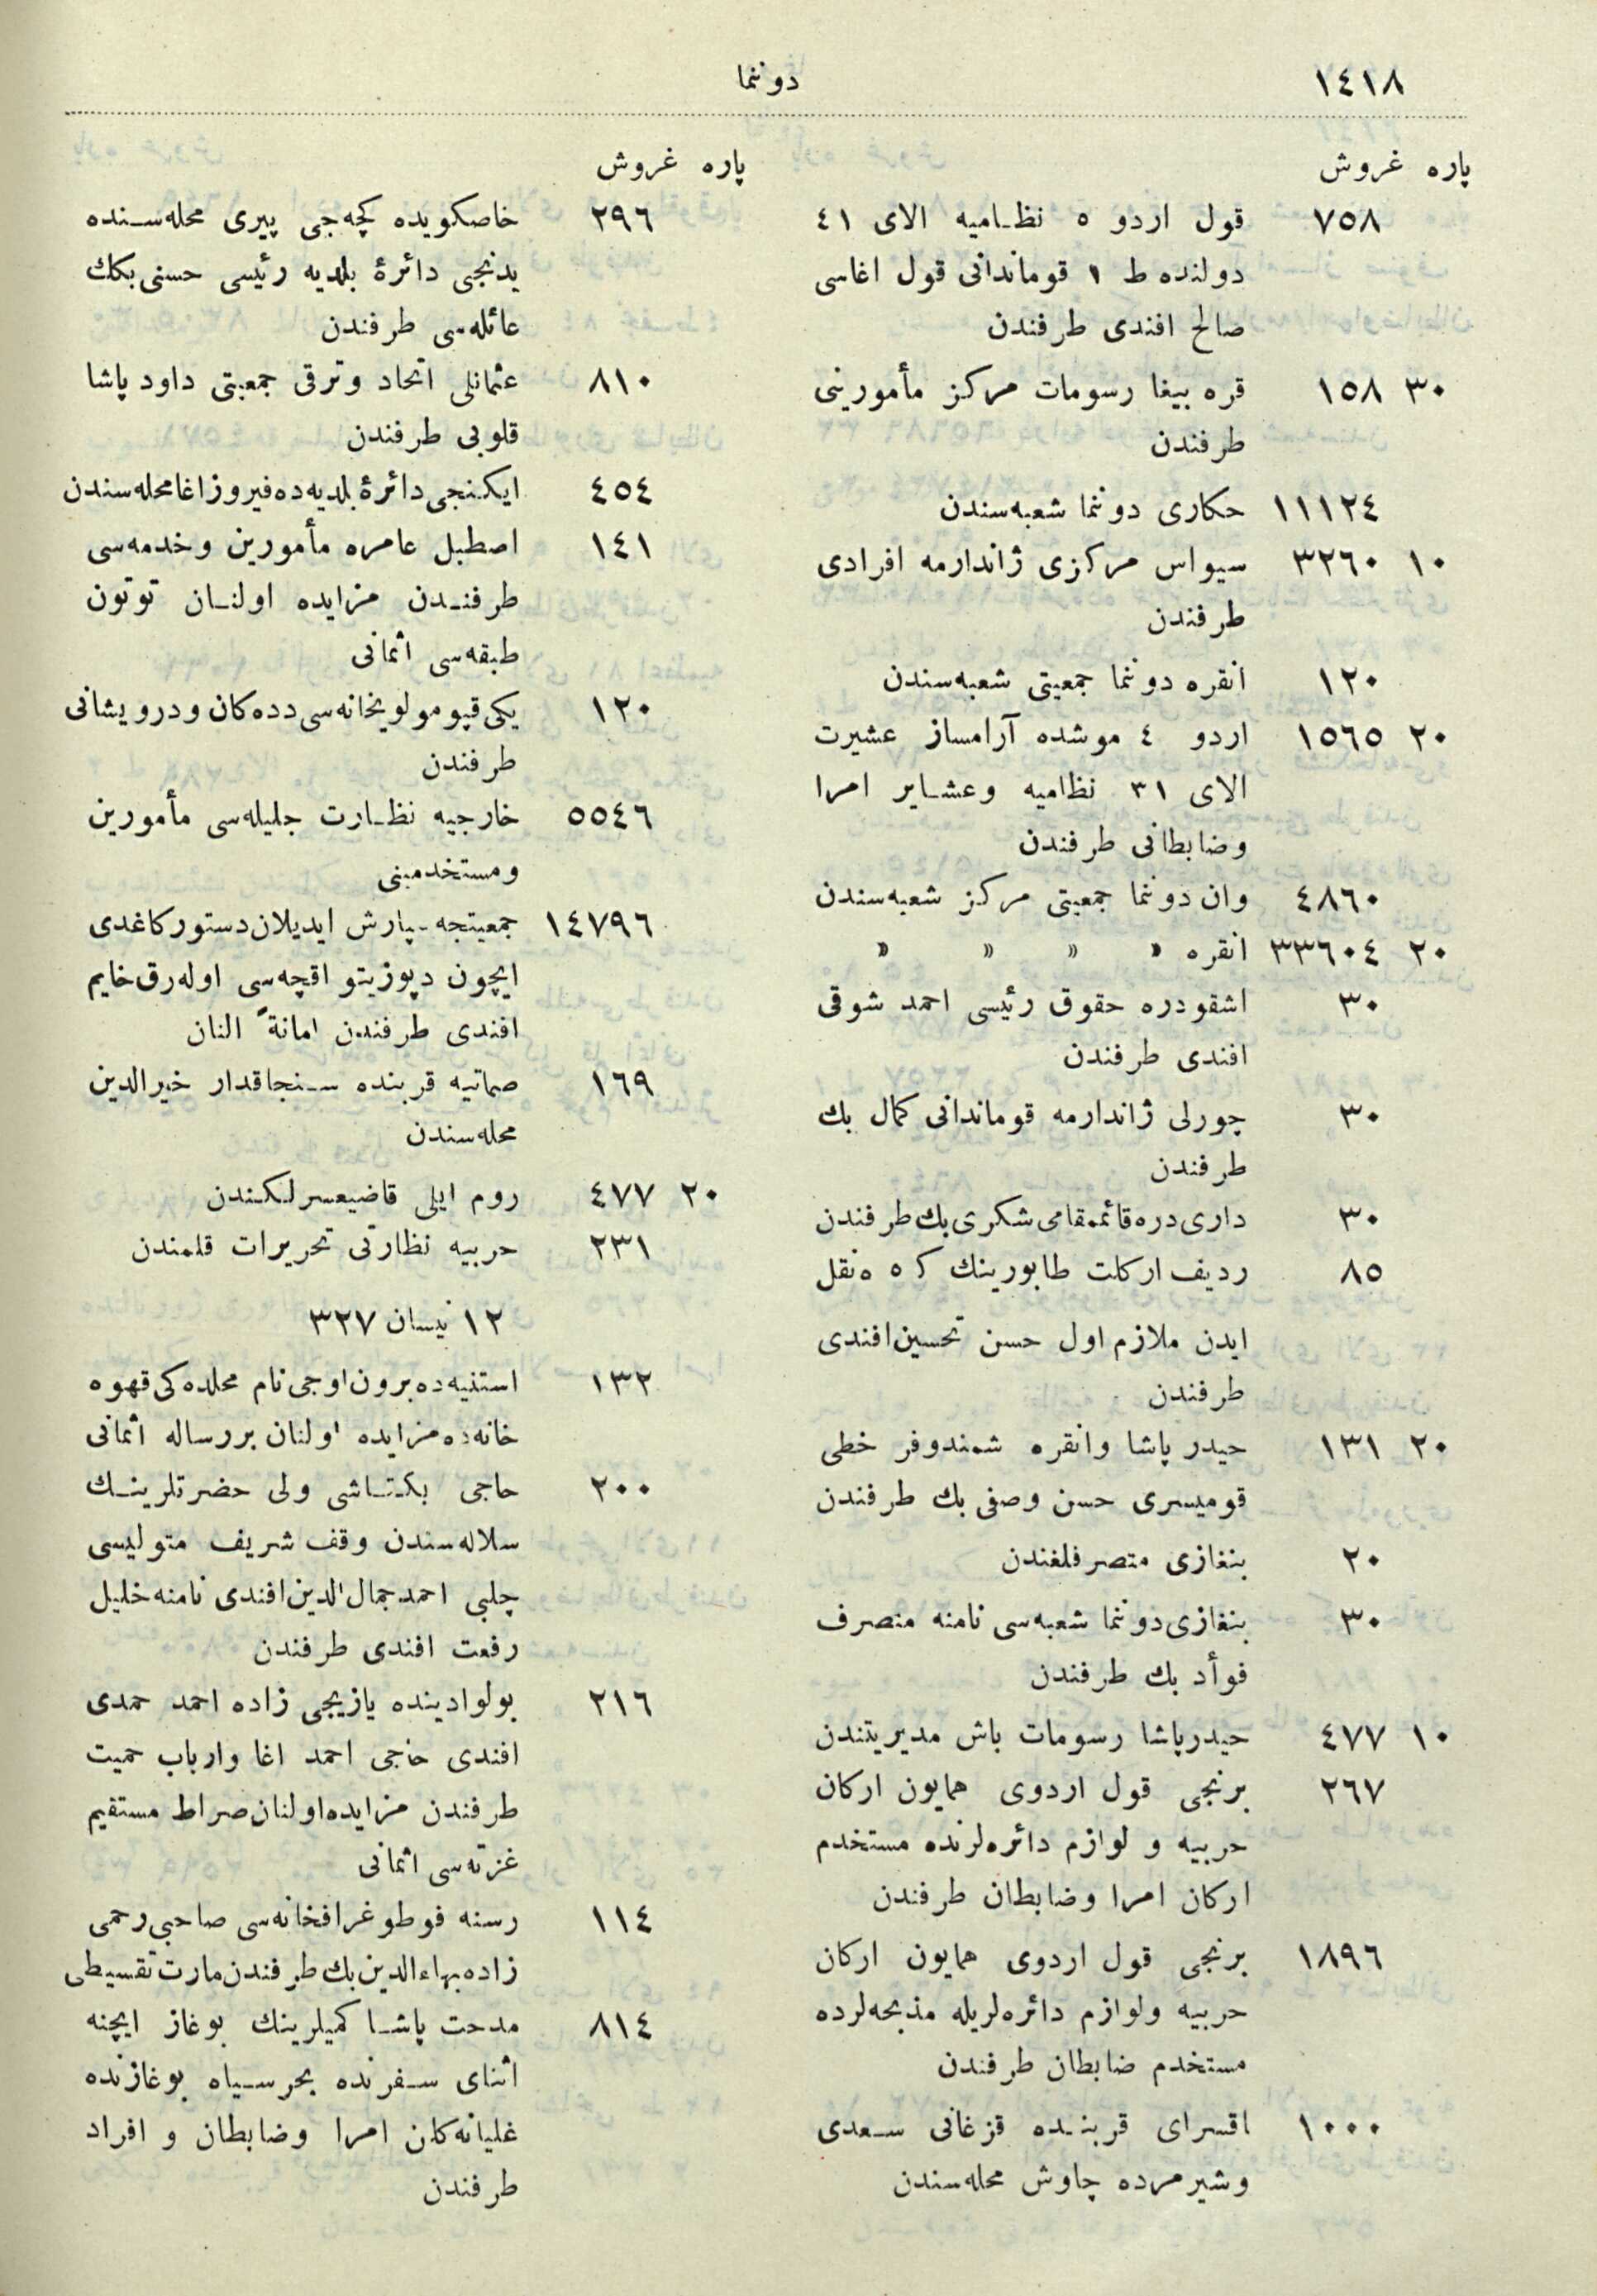 ١٤١٨
دوننما
پاره غروش
٧٥٨ قول اردو ٥ نظامیه الای ٤١
دولنده ط ١ قوماندانی قول اغاسی
صالح افندی طرفندن
٣٠ ١٥٨ قره بیغا رسومات مرکز مأمورینی
طرفندن
١١١٢٤ حکاری دوننما شعبه‌سندن
١٠ ٣٢٦٠ سیواس مرکزی ژاندارمه افرادی
طرفندن
١٢٠ انقره دوننما جمعیتی شعبه‌سندن
٢٠ ١٥٦٥ اردو ٤ موشده آرامساز عشیرت
الای ٣١ نظامیه وعشایر امرا
وضابطانی طرفندن
٤٨٦٠ وان دوننما جمعیتی مرکز شعبه‌سندن
٢٠ ٣٣٦٠٤ انقره » » » »
٣٠ اشقودره حقوق رئیسی احمد شوقی
افندی طرفندن
٣٠ چورلی ژاندارمه قوماندانی کمال بك
طرفندن
٣٠ داری‌دره قائمقامی شکری بك طرفندن
٨٥ ردیف ارکلت طابورینك ك ٥ ه نقل
ایدن ملازم اول حسن تحسین افندی
طرفندن
٢٠ ١٣١ حیدر پاشا وانقره شمندوفر خطی
قومیسری حسن وصفی بك طرفندن
٢٠ بنغازی متصرفلغندن
٣٠ بنغازی دوننما شعبه‌سی نامنه متصرف
فوأد بك طرفندن
١٠ ٤٧٧ حیدرپاشا رسومات باش مدیریتندن
٢٦٧ برنجی قول اردوی همایون ارکان
حربیه و لوازم دائره‌لرنده مستخدم
ارکان امرا وضابطان طرفندن
١٨٩٦ برنجی قول اردوی همایون ارکان
حربیه ولوازم دائره‌لریله مذبحه‌لرده
مستخدم ضابطان طرفندن
١٠٠٠ اقسرای قربنده قزغانی سعدی
وشیرمرده چاوش محله‌سندن
پاره غروش
٢٩٦ خاصکویده کچه‌جی پیری محله‌سنده
یدنجی دائرۀ بلدیه رئیسی حسنی بکك
عائله‌سی طرفندن
٨١٠ عثمانلی اتحاد وترقی جمعیتی داود پاشا
قلوبی طرفندن
٤٥٤ ایکنجی دائرۀ بلدیه‌ده فیروزاغا محله‌سندن
١٤١ اصطبل عامره مأمورین وخدمه‌سی
طرفندن مزایده اولنان توتون
طبقه‌سی اثمانی
١٢٠ یکی قپو مولویخانه‌سی دده‌کان ودرویشانی
طرفندن
٥٥٤٦ خارجیه نظارت جلیله‌سی مأمورین
ومستخدمینی
١٤٧٩٦ جمعیتجه سپارش ایدیلان دستور کاغدی
ایچون دپوزیتو اقچه‌سی اوله‌رق خایم
افندی طرفندن امانةً النان
١٦٩ صماتیه قربنده سنجاقدار خیرالدین
محله‌سندن
٢٠ ٤٧٧ روم ایلی قاضیعسرلکندن
٢٣١ حربیه نظارتی تحریرات قلمندن
١٢ نیسان ٣٢٧
١٣٢ استنیه‌ده برون اوجی نام محلده‌کی قهوه
خانه‌ده مزایده اولنان بررساله اثمانی
٢٠٠ حاجی بکتاشی ولی حضرتلرینك
سلاله‌سندن وقف شریف متولیسی
چلبی احمد جمال الدین افندی نامنه خلیل
رفعت افندی طرفندن
٢١٦ بولوادینده یازیجی زاده احمد حمدی
افندی حاجی احمد اغا وارباب حمیت
طرفندن مزایده اولنان صراط مستقیم
غزته‌سی اثمانی
١١٤ رسنه فوطوغرافخانه‌سی صاحبی رحمی
زاده بهاءالدین بك طرفندن مارت تقسیطی
٨١٤ مدحت پاشا کمیلرینك بوغاز ایچنه
اثنای سفرنده بحرسیاه بوغازنده
غلیانه‌کان امرا وضابطان و افراد
طرفندن